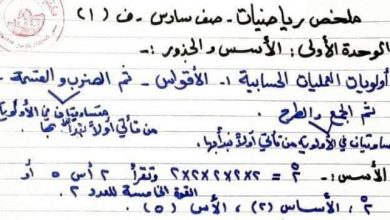 ملخص رياضيات - صف سادس - ف (١)
الوحدة الأولى: الأسس والجذور :-
أولويات العمليات الحسابية ١- الأقواس - ثم الضرب والقسمة -
متساويتان في الأولوية
من تأتي أولاً نبدأ بها.
ثم الجمع والطرح
متساويتان في الأولوية من تأتي أولاً نبدأ بها.
الأسس :- ٢⁵ = ٢×٢×٢×٢×٢ وتقرأ ٢ أس ٥ أو
القوة الخامسة للعدد ٢.
٢⁵ ، الأساس (٢) ، الأس (٥) .